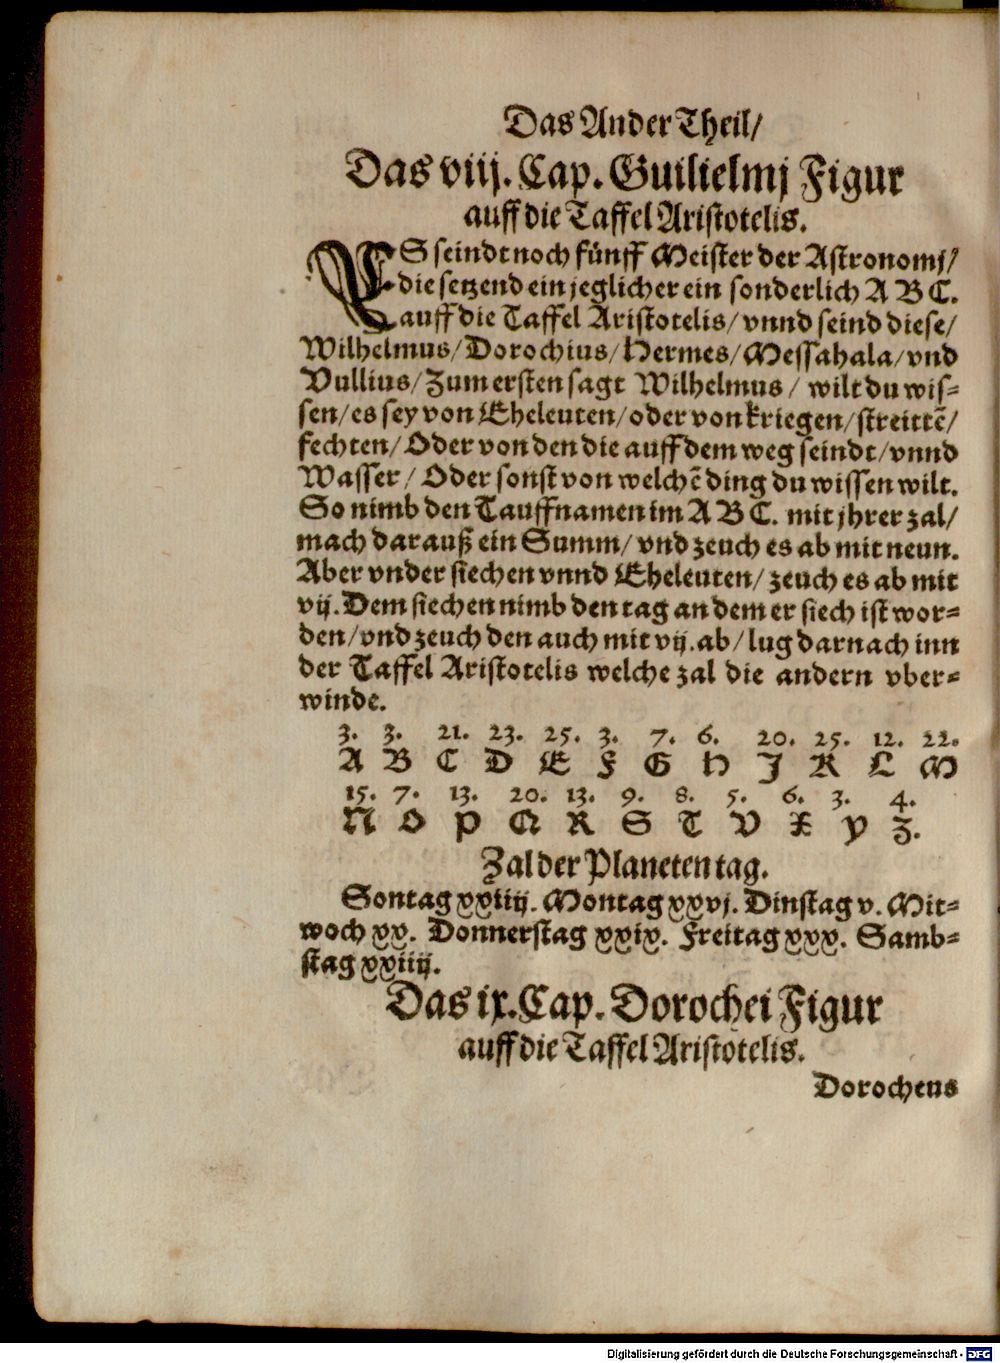 Das Ander Theil/
Das viij. Cap. Guilielmj Figur
auff die Taffel Aristotelis.
ES seindt noch fünff Meister der Astronomj/
die setzend ein jeglicher ein sonderlich A B C.
auff die Taffel Aristotelis/ vnnd seind diese/
Wilhelmus/ Dorochius/ Hermes/ Messahala/ vnd
Vullius/ Zum ersten sagt Wilhelmus / wilt du wis-
sen/ es sey von Eheleuten/ oder von kriegen/ streittē/
fechten/ Oder von den die auff dem weg seindt/ vnnd
Wasser / Oder sonst von welchē ding du wissen wilt.
So nimb den Tauffnamen im A B C. mit jhrer zal/
mach darauß ein Summ/ vnd zeuch es ab mit neun.
Aber vnder siechen vnnd Eheleuten/ zeuch es ab mit
vij. Dem siechen nimb den tag an dem er siech ist wor-
den/ vnd zeuch den auch mit vij. ab/ lug darnach inn
der Taffel Aristotelis welche zal die andern vber-
winde.
3. 3. 21. 23. 25. 3. 7. 6. 20. 25. 12. 22.
A B C D E F G H J K L M
15. 7. 13. 20. 13. 9. 8. 5. 6. 3. 4.
N O P Q R S T V X Y Z.
Zal der Planeten tag.
Sontag xxiiij. Montag xxvj. Dinstag v. Mit-
woch xx. Donnerstag xxix. Freitag xxx. Samb-
stag xxiiij.
Das ix. Cap. Dorochei Figur
auff die Taffel Aristotelis.
Dorocheus
Digitalisierung gefördert durch die Deutsche Forschungsgemeinschaft - DFG